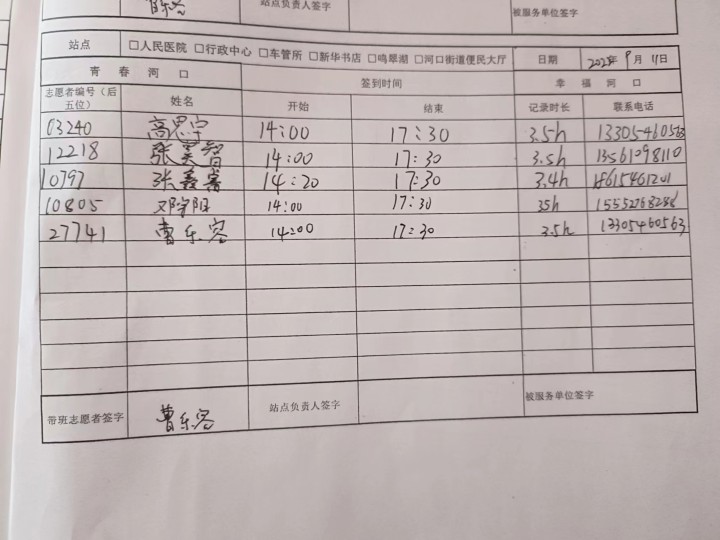 站点负责人签字 被服务单位签字
站点 □人民医院 □行政中心 □车管所 □新华书店 □鸣翠湖 □河口街道便民大厅 日期 9月11日
青春河口 签到时间 幸福河口
志愿者编号（后五位） 姓名 开始 结束 记录时长 联系电话
03240 高思宇 14:00 17:30 3.5h
12218 张昊智 14:00 17:30 3.5h 13561098110
10797 14:20 17:30 3.4h
10805 邓宇阳 14:00 17:30 35h
27741 曹乐容 14:00 17:30 3.5h 13305460563
带班志愿者签字 曹乐容 站点负责人签字 被服务单位签字